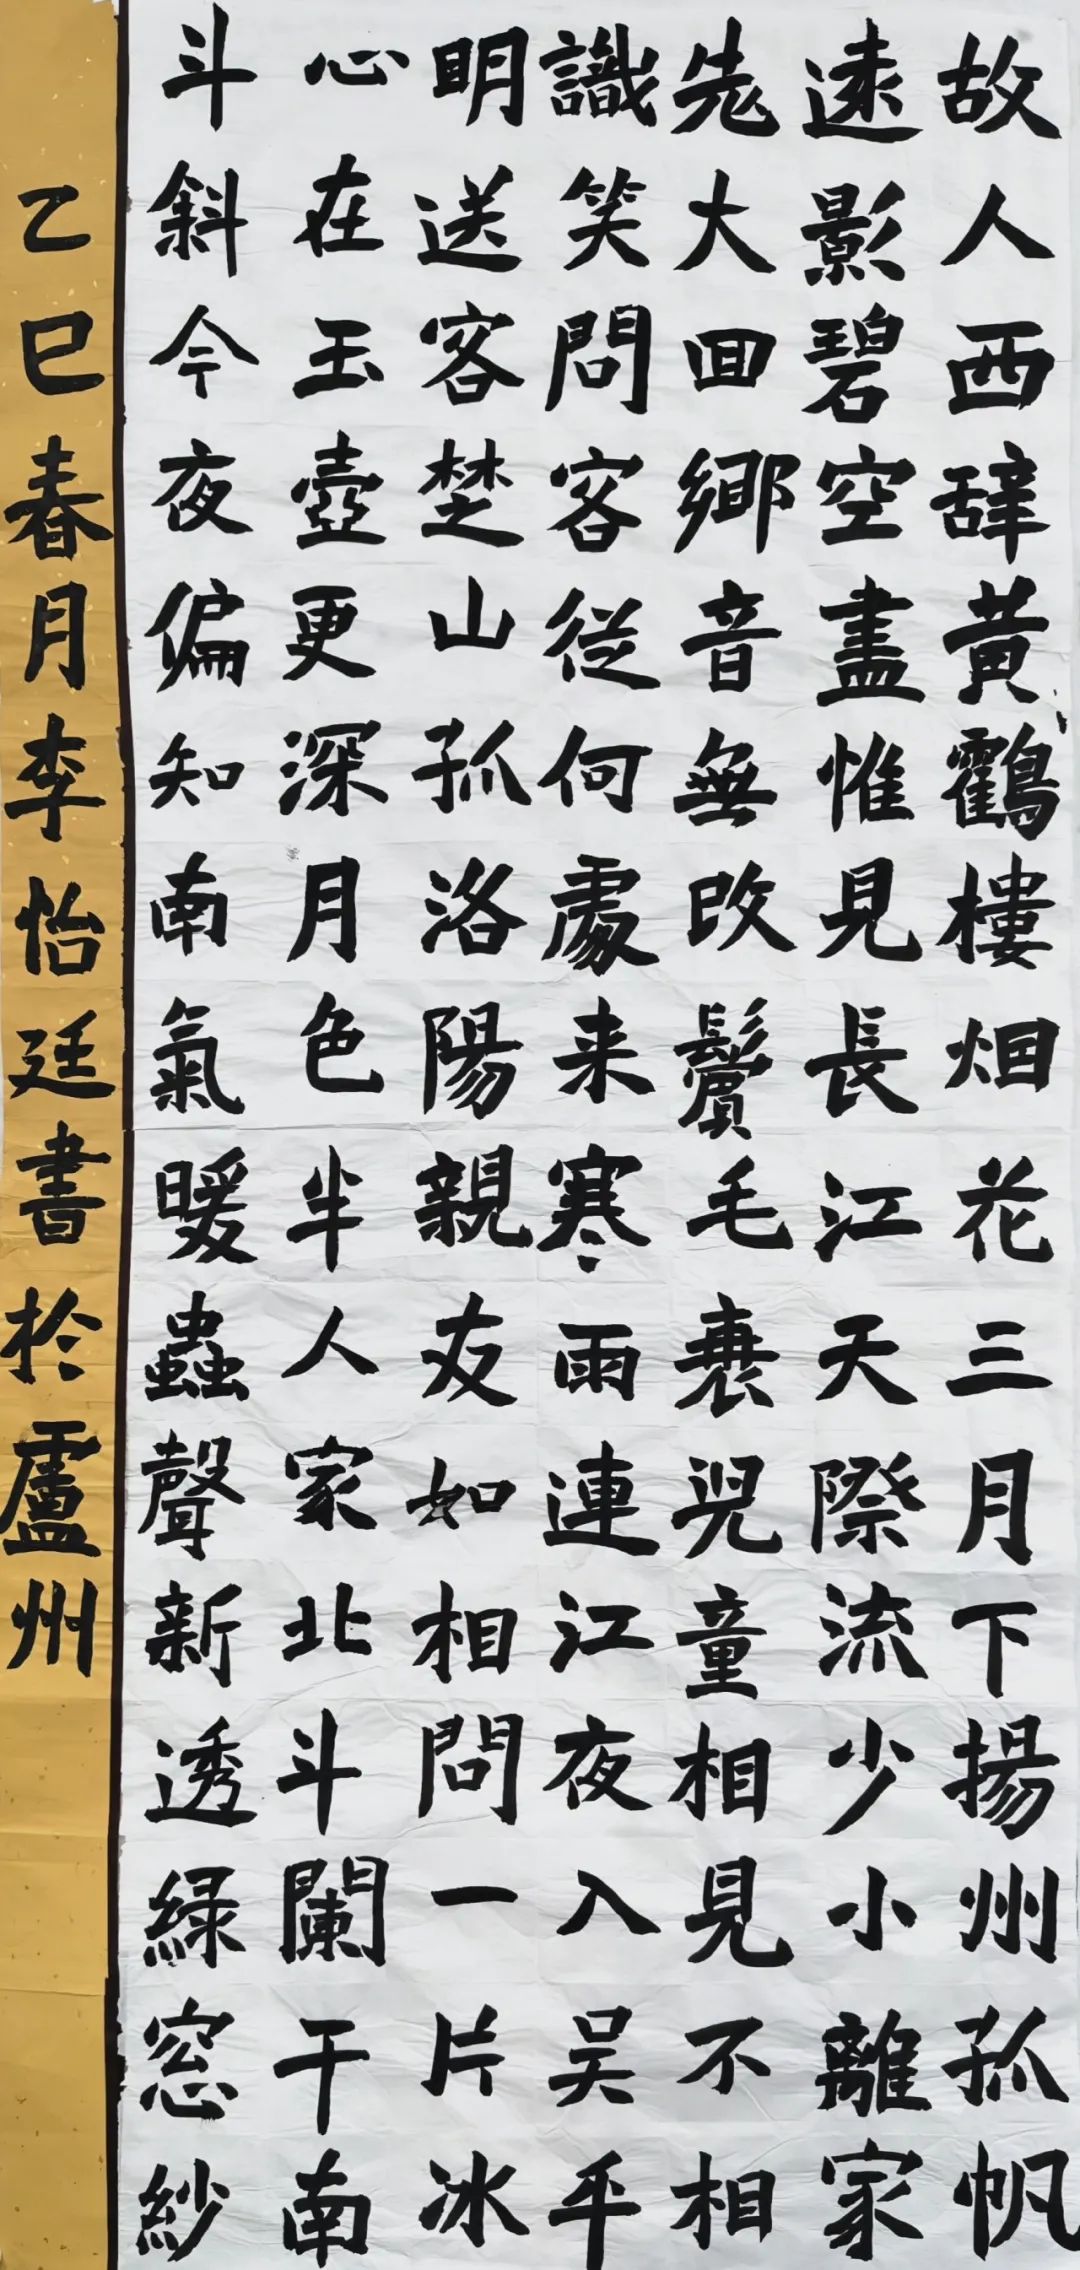 故人西辭黃鶴樓烟花三月下揚州孤帆
遠影碧空盡惟見長江天際流少小離家
先大回鄉音無改鬢毛衰兒童相見不相
識笑問客從何處来寒雨連江夜入吴平
明送客楚山孤洛陽親友如相問一片冰
心在玉壺更深月色半人家北斗闌干南
斗斜今夜偏知南氣暖蟲聲新透綠窓紗
乙巳春月李怡廷書於盧州